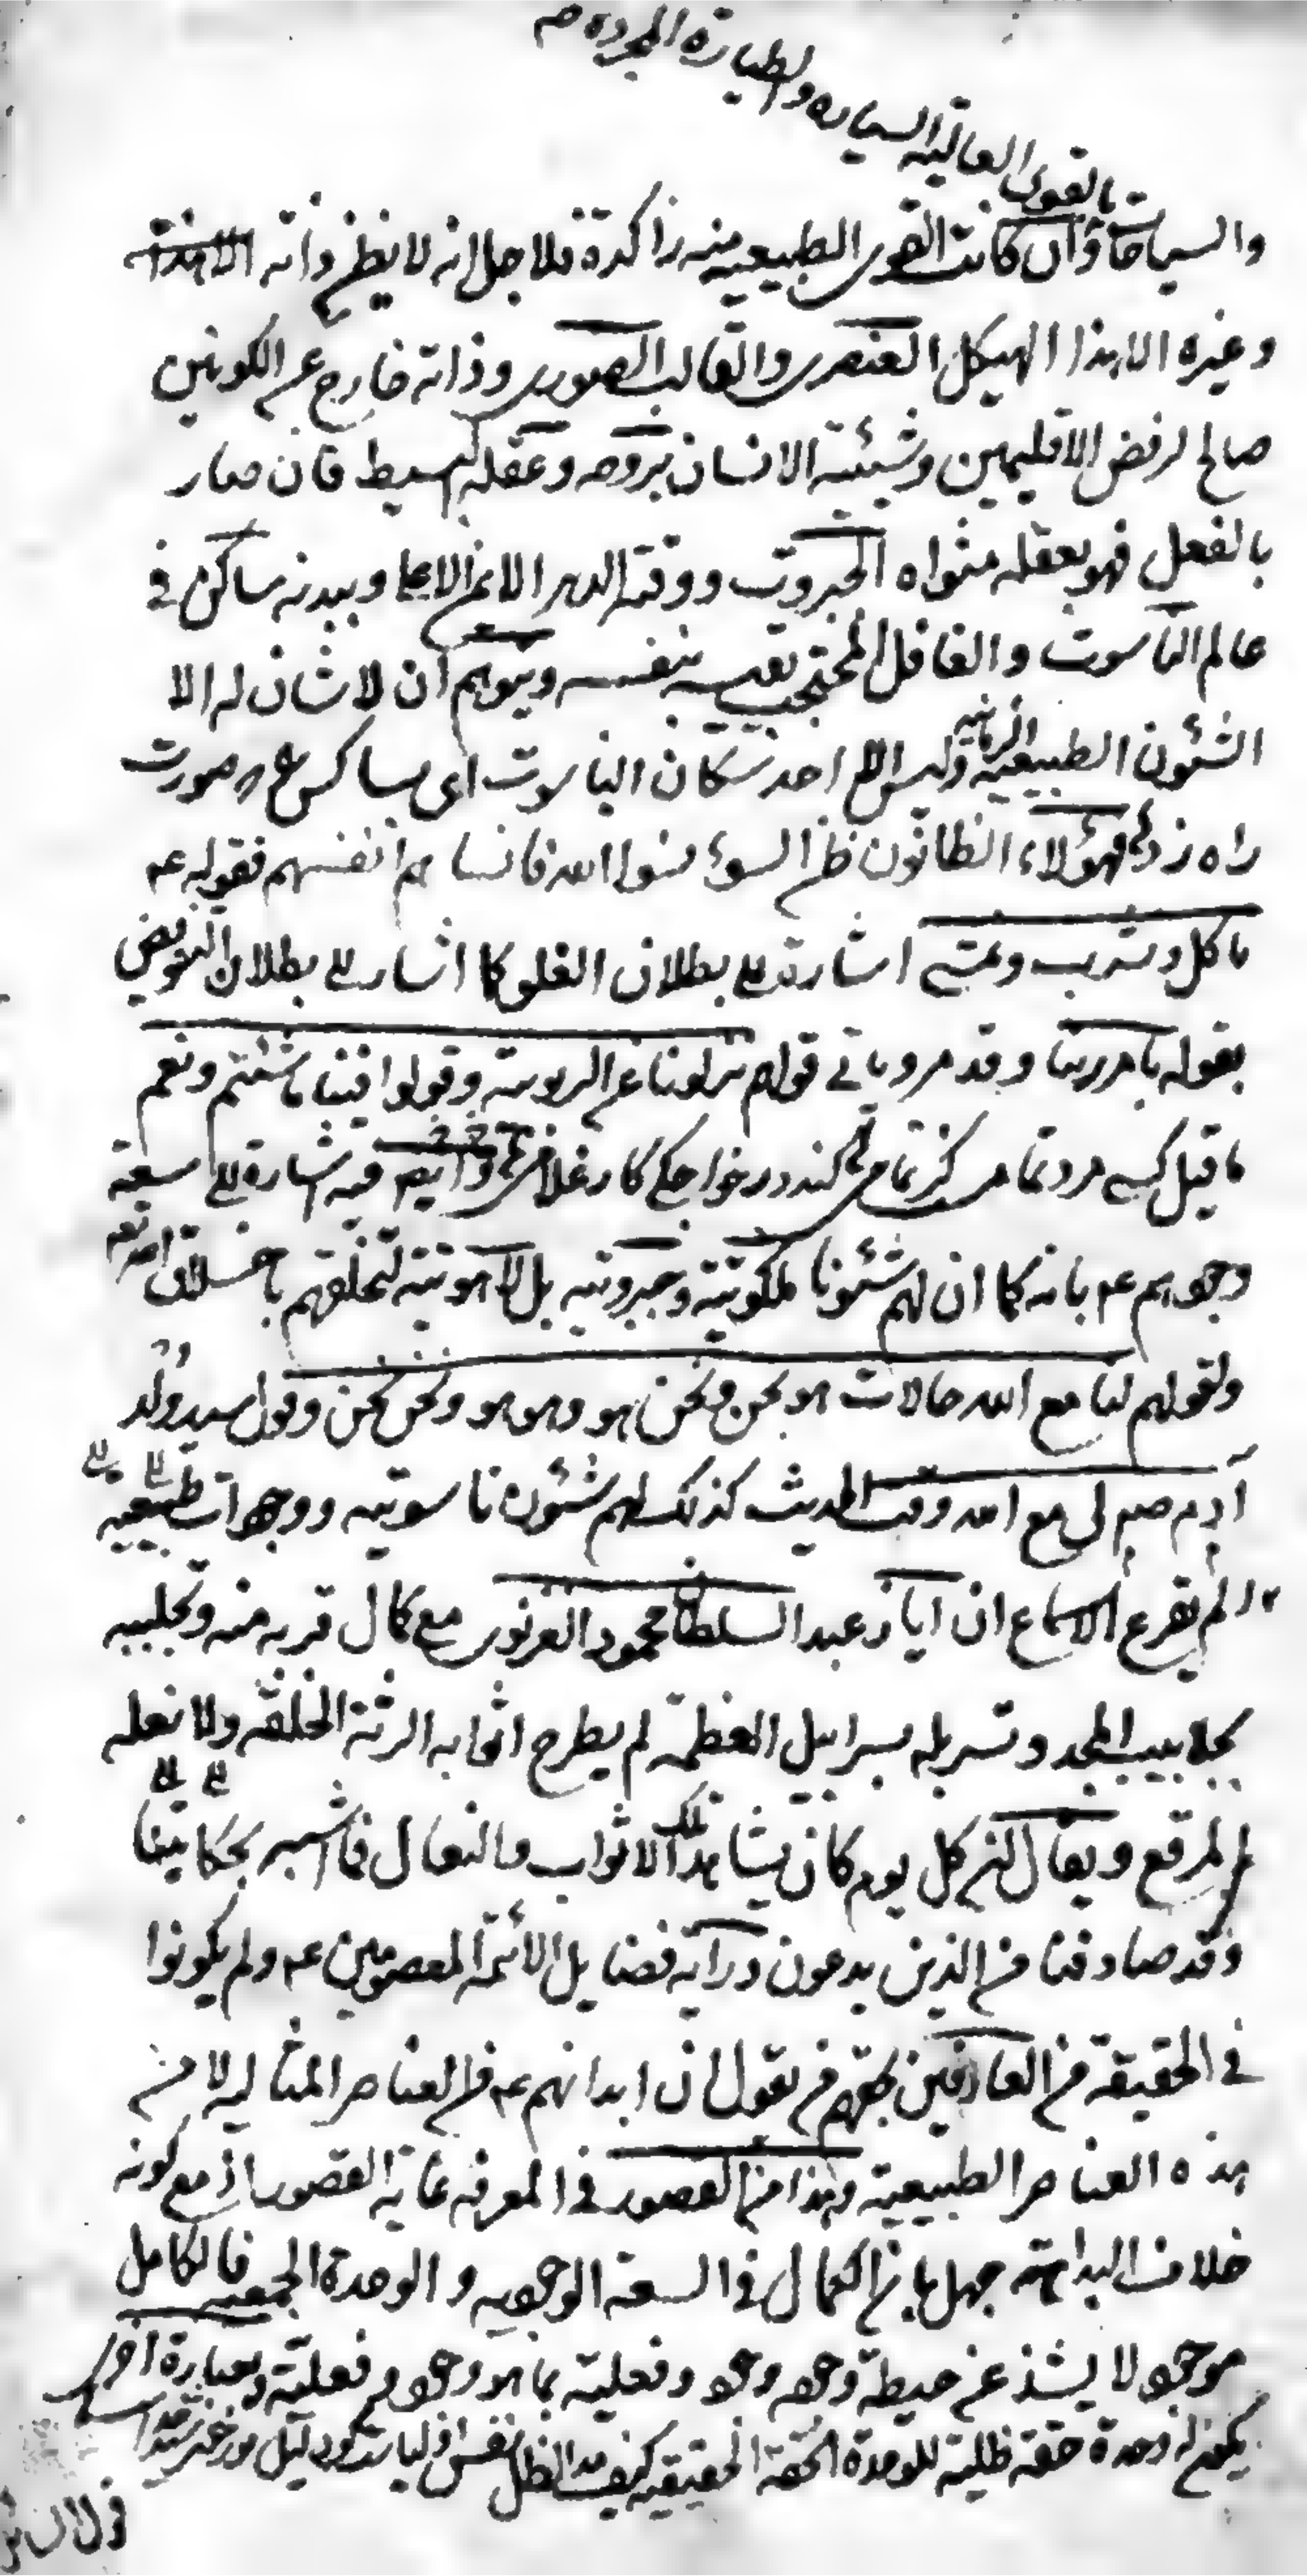 بالقوى العالية السياره والطيارة المجرده صح
والسياحات وان كانت القوى الطبيعيه منه راكدة فلاجل انه لا يظن ذاته
وغيره الا هذا الهيكل العنصرى والقالب الصورى وذاته خارج عن الكونين
صالح لرفض الاقليمين وشيئية الانسان بروحه وعقله البسيط فان صار
بالفعل فهو بعقله مثواه الجبروت ووقته الدهر الايمن الاعلى وببدنه ساكن فى
عالم الناسوت والغافل المحتجب يقيسه بنفسه ويتوهم ان لا شان له الا
الشئون الطبيعية الزمانيه وليس الا احد سكان الناسوت اى بسا كس را صورت
راه زد فهؤلاء الظانون ظن السوء نسوا الله فانساهم انفسهم فقوله ع
ياكل ويشرب ويمشى اشارت الى بطلان الغلو كما اشار الى بطلان التفويض
بقوله بامر ربنا وقد مر وياتى قولهم نزلونا عن الربوبية وقولوا فينا ما شئتم ونعم
ما قيل كسى مرد تمام است كز تمامى كند در خواجكى كار غلامى وايضا فيه اشارة الى سعة
وجودهم ع بانه كما ان لهم شئونا ملكوتية وجبروتيه بل لاهوتية لتخلقهم باخلاق الله تعالى
ولقولهم لنا مع الله حالات هو نحن ونحن هو وهو هو ونحن نحن وقول سيد ولد
آدم صلعم لى مع الله وقت الحديث كذلك لهم شئون ناسوتيه ووجودات طبيعية
الم يقرع الاسماع ان اياز عبد السلطان محمود الغزنوى مع كمال قربه منه وتجلببه
بجلابيب المجد وتسربله بسرابيل العظمة لم يطرح اثوابه الرثة الخلقه ولا نعله
المرقع ويقال انه كل يوم كان يشاهد تلك الاثواب والنعال فما اشبه بحكايتنا
وقد صادفنا من الذين يدعون دراية فضايل الائمة المعصومين ع ولم يكونوا
فى الحقيقة من العارفين بحقهم من يقول ان ابدانهم ع من العناصر المثاليه لا من
هذه العناصر الطبيعية وهذا من القصور فى المعرفه غاية القصور اذ مع كونه
خلاف البداهة جهل بان الكمال فى السعة الوجوديه والوحدة الجمعيه فالكامل
موجود لا يشذ عن حيطة وجوده وجود وفعلية بما هو وجود وفعلية وبعبارة اخرى
يكون له وحدة حقه ظلية للوحدة الحقة الحقيقيه كيف مد الظل نقش اولياست كو دليل نور خورشيد خداست